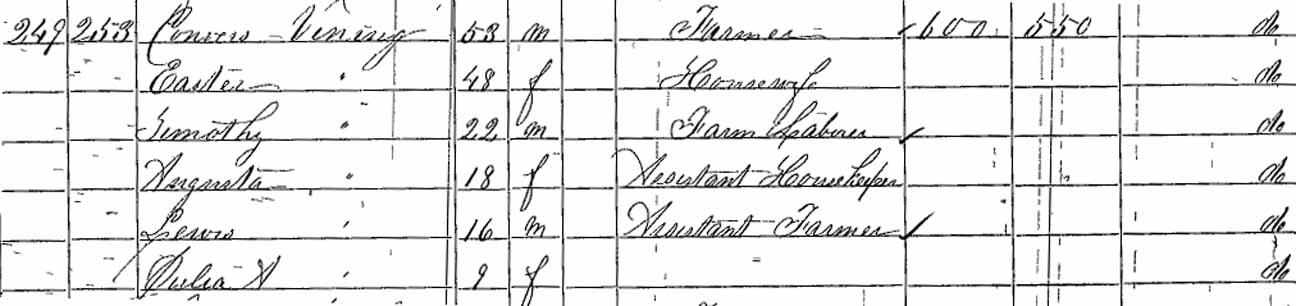 249 253 Convers Vining 53 m Farmer 600 550 do
Easter " 48 f Housewife do
Timothy " 22 m Farm Laborer do
Augusta " 18 f Assistant Housekeeper do
Lewis " 16 m Assistant Farmer do
Julia A " 9 f " do